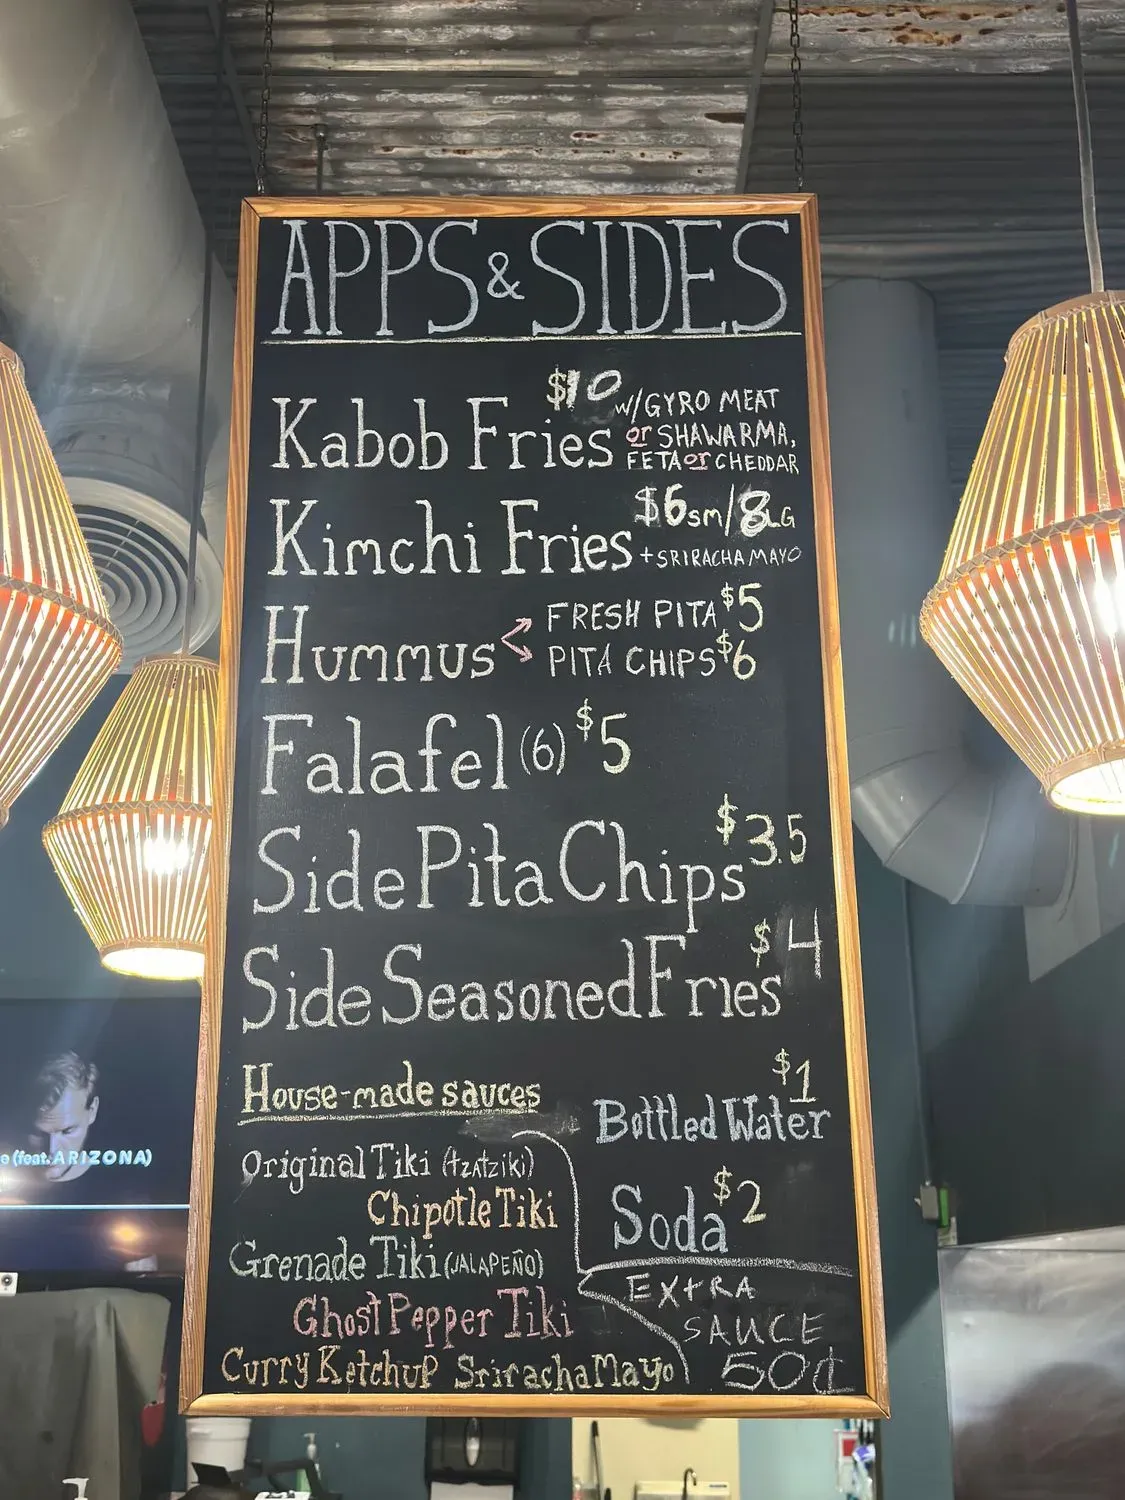 APPS & SIDES
Kabob Fries $10 w/GYRO MEAT
or SHAWARMA,
FETA or CHEDDAR
Kimchi Fries $6sm/8LG
+SRIRACHA MAYO
Hummus < FRESH PITA $5
PITA CHIPS $6
Falafel (6) $5
Side Pita Chips $3.5
Side Seasoned Fries $4
House-made sauces
Original Tiki (tzatziki)
Chipotle Tiki
Grenade Tiki (JALAPEÑO)
Ghost Pepper Tiki
Curry Ketchup Sriracha Mayo
Bottled Water $1
Soda $2
EXTRA
SAUCE
50¢
e (feat. ARIZONA)